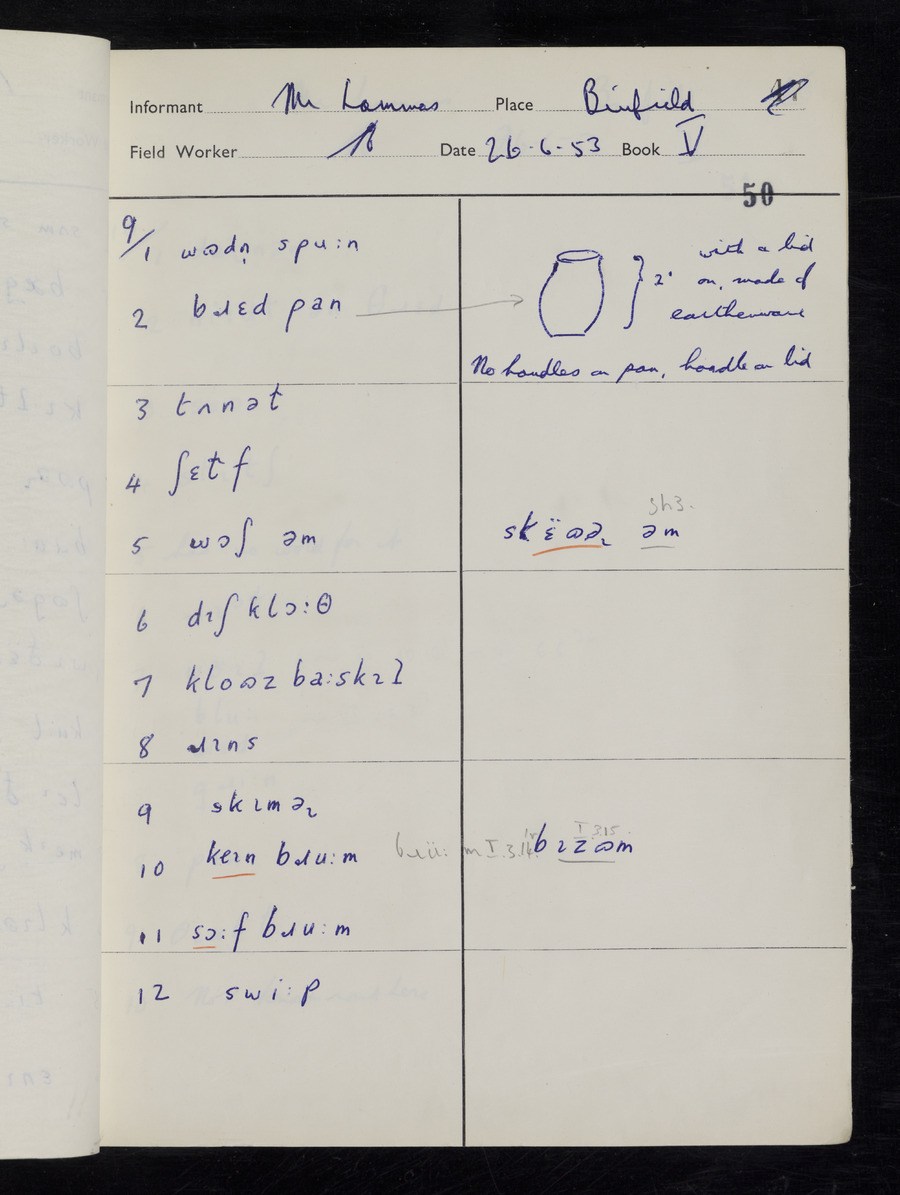 Informant Mr Lammas Place Binfield
Field Worker Date 26-6-53 Book V
50
9/1 wɷdn̩ spu:n
with a lid
on, made of
earthenware
2'
2 bɹɛd pan
No handles on pan, handle on lid
3 tɅnnət
4 ʃɛtf
5 wɔʃ əm
skɛ̈ɷə₂ əm
6 dɪʃ klɔ:θ
7 kloɷz ba:skɪt
8 ɹɪns
9 skɪmə₂
10 keɪn bɹu:m
bɹü:m I.3.
bɪzɷm
I 3.15.
11 sɔ:f bɹu:m
12 swi:p